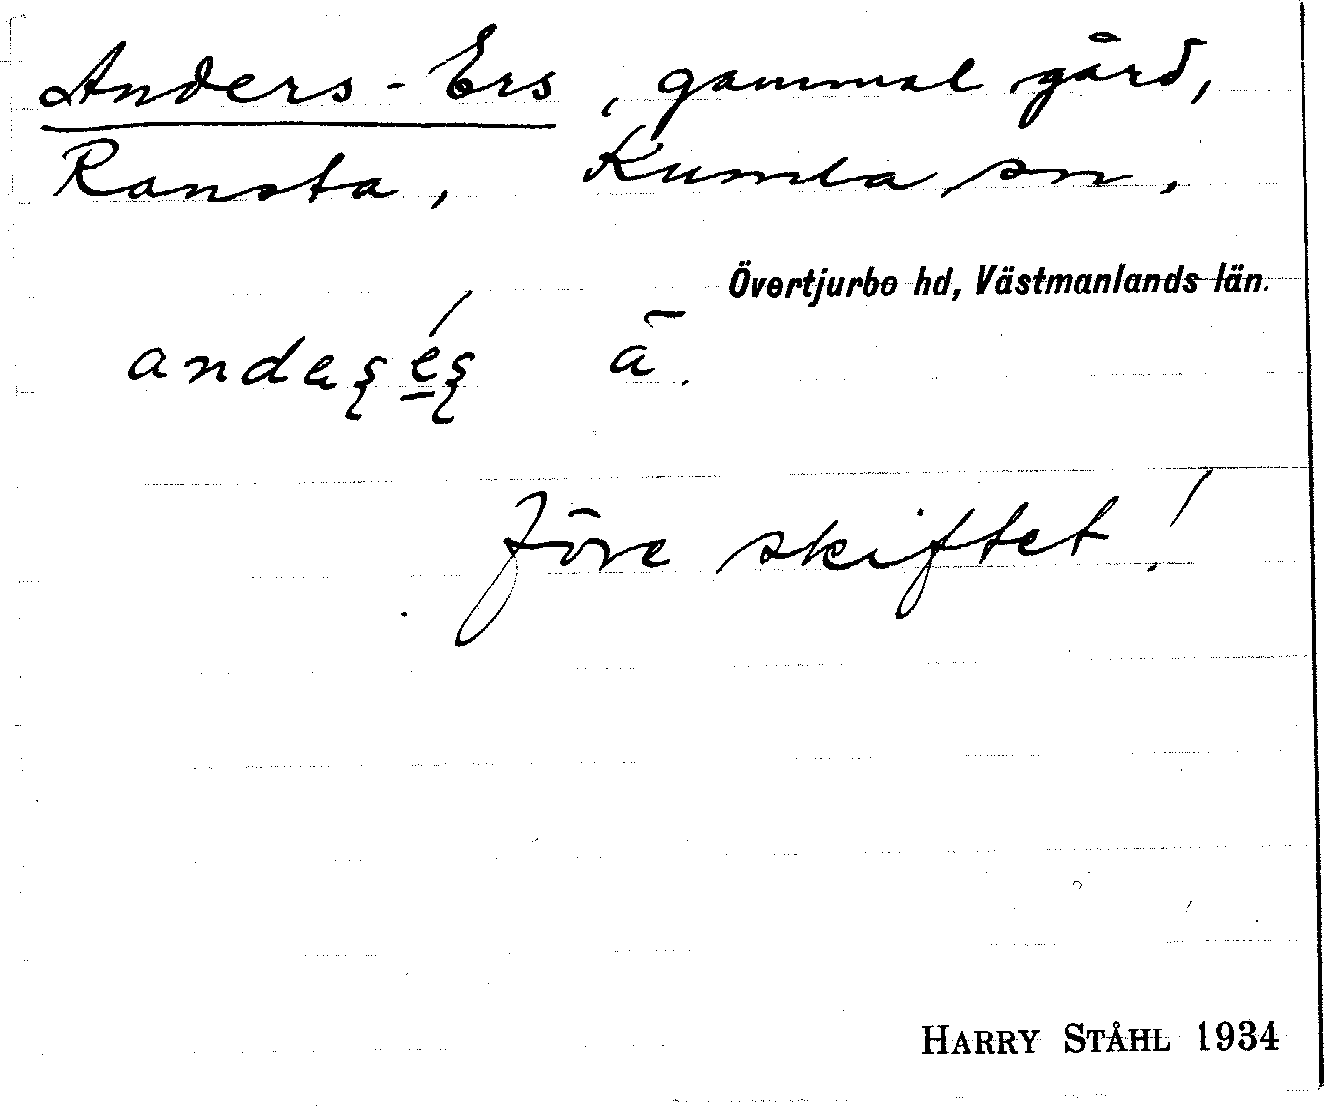 Anders-Ers, gammal gård,
Ransta, Kumla sn,
Övertjurbo hd, Västmanlands län.
före skiftet!
HARRY STÅHL 1934